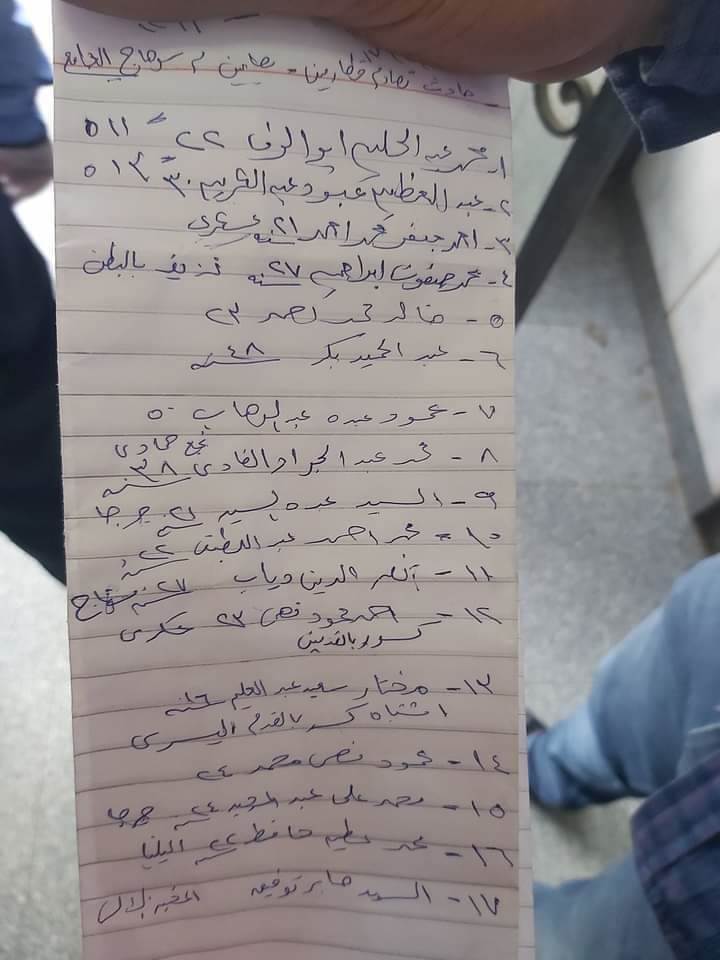 حادث تصادم قطارين - مصابين م سوهاج الجامع
١- محمد عبد الحليم ابو الوفا ٢٢ ٥١١
٢- عبد العظيم عبود عبد الكريم ٣٠ ٥١٣
٣- احمد جعفر محمد احمد ٢١ سنه
٤- محمد صفوت ابراهيم ٢٧ سنه نزيف بالبطن
٥- خالد محمد نصر ٢٣
٦- عبد الحميد بكر ٤٨ سنه
٧- محمود عبده عبد الوهاب ٥٠
نجع حمادى
٨- محمد عبد الجواد الفادى ٣٨ سنه
٩- السيد عبده السيد ٢١ سنه جرجا
١٠- محمد احمد عبد اللطيف ٢٢ سنه
١١- نصر الدين دياب ٢٧ سنه سوهاج
١٢- احمد محمود فهمى ٢٣ عسكرى
كسور بالقدمين
١٣- مختار سعيد عبد العليم ١٦ سنه
اشتباه كسر بالقدم اليسرى
١٤- محمود محمد ٢٤
١٥- محمد على عبد المجيد ٢٤ سنه جرجا
١٦- محمد حافظ ٢٢ سنه البلينا
١٧- السيد صابر توفيق